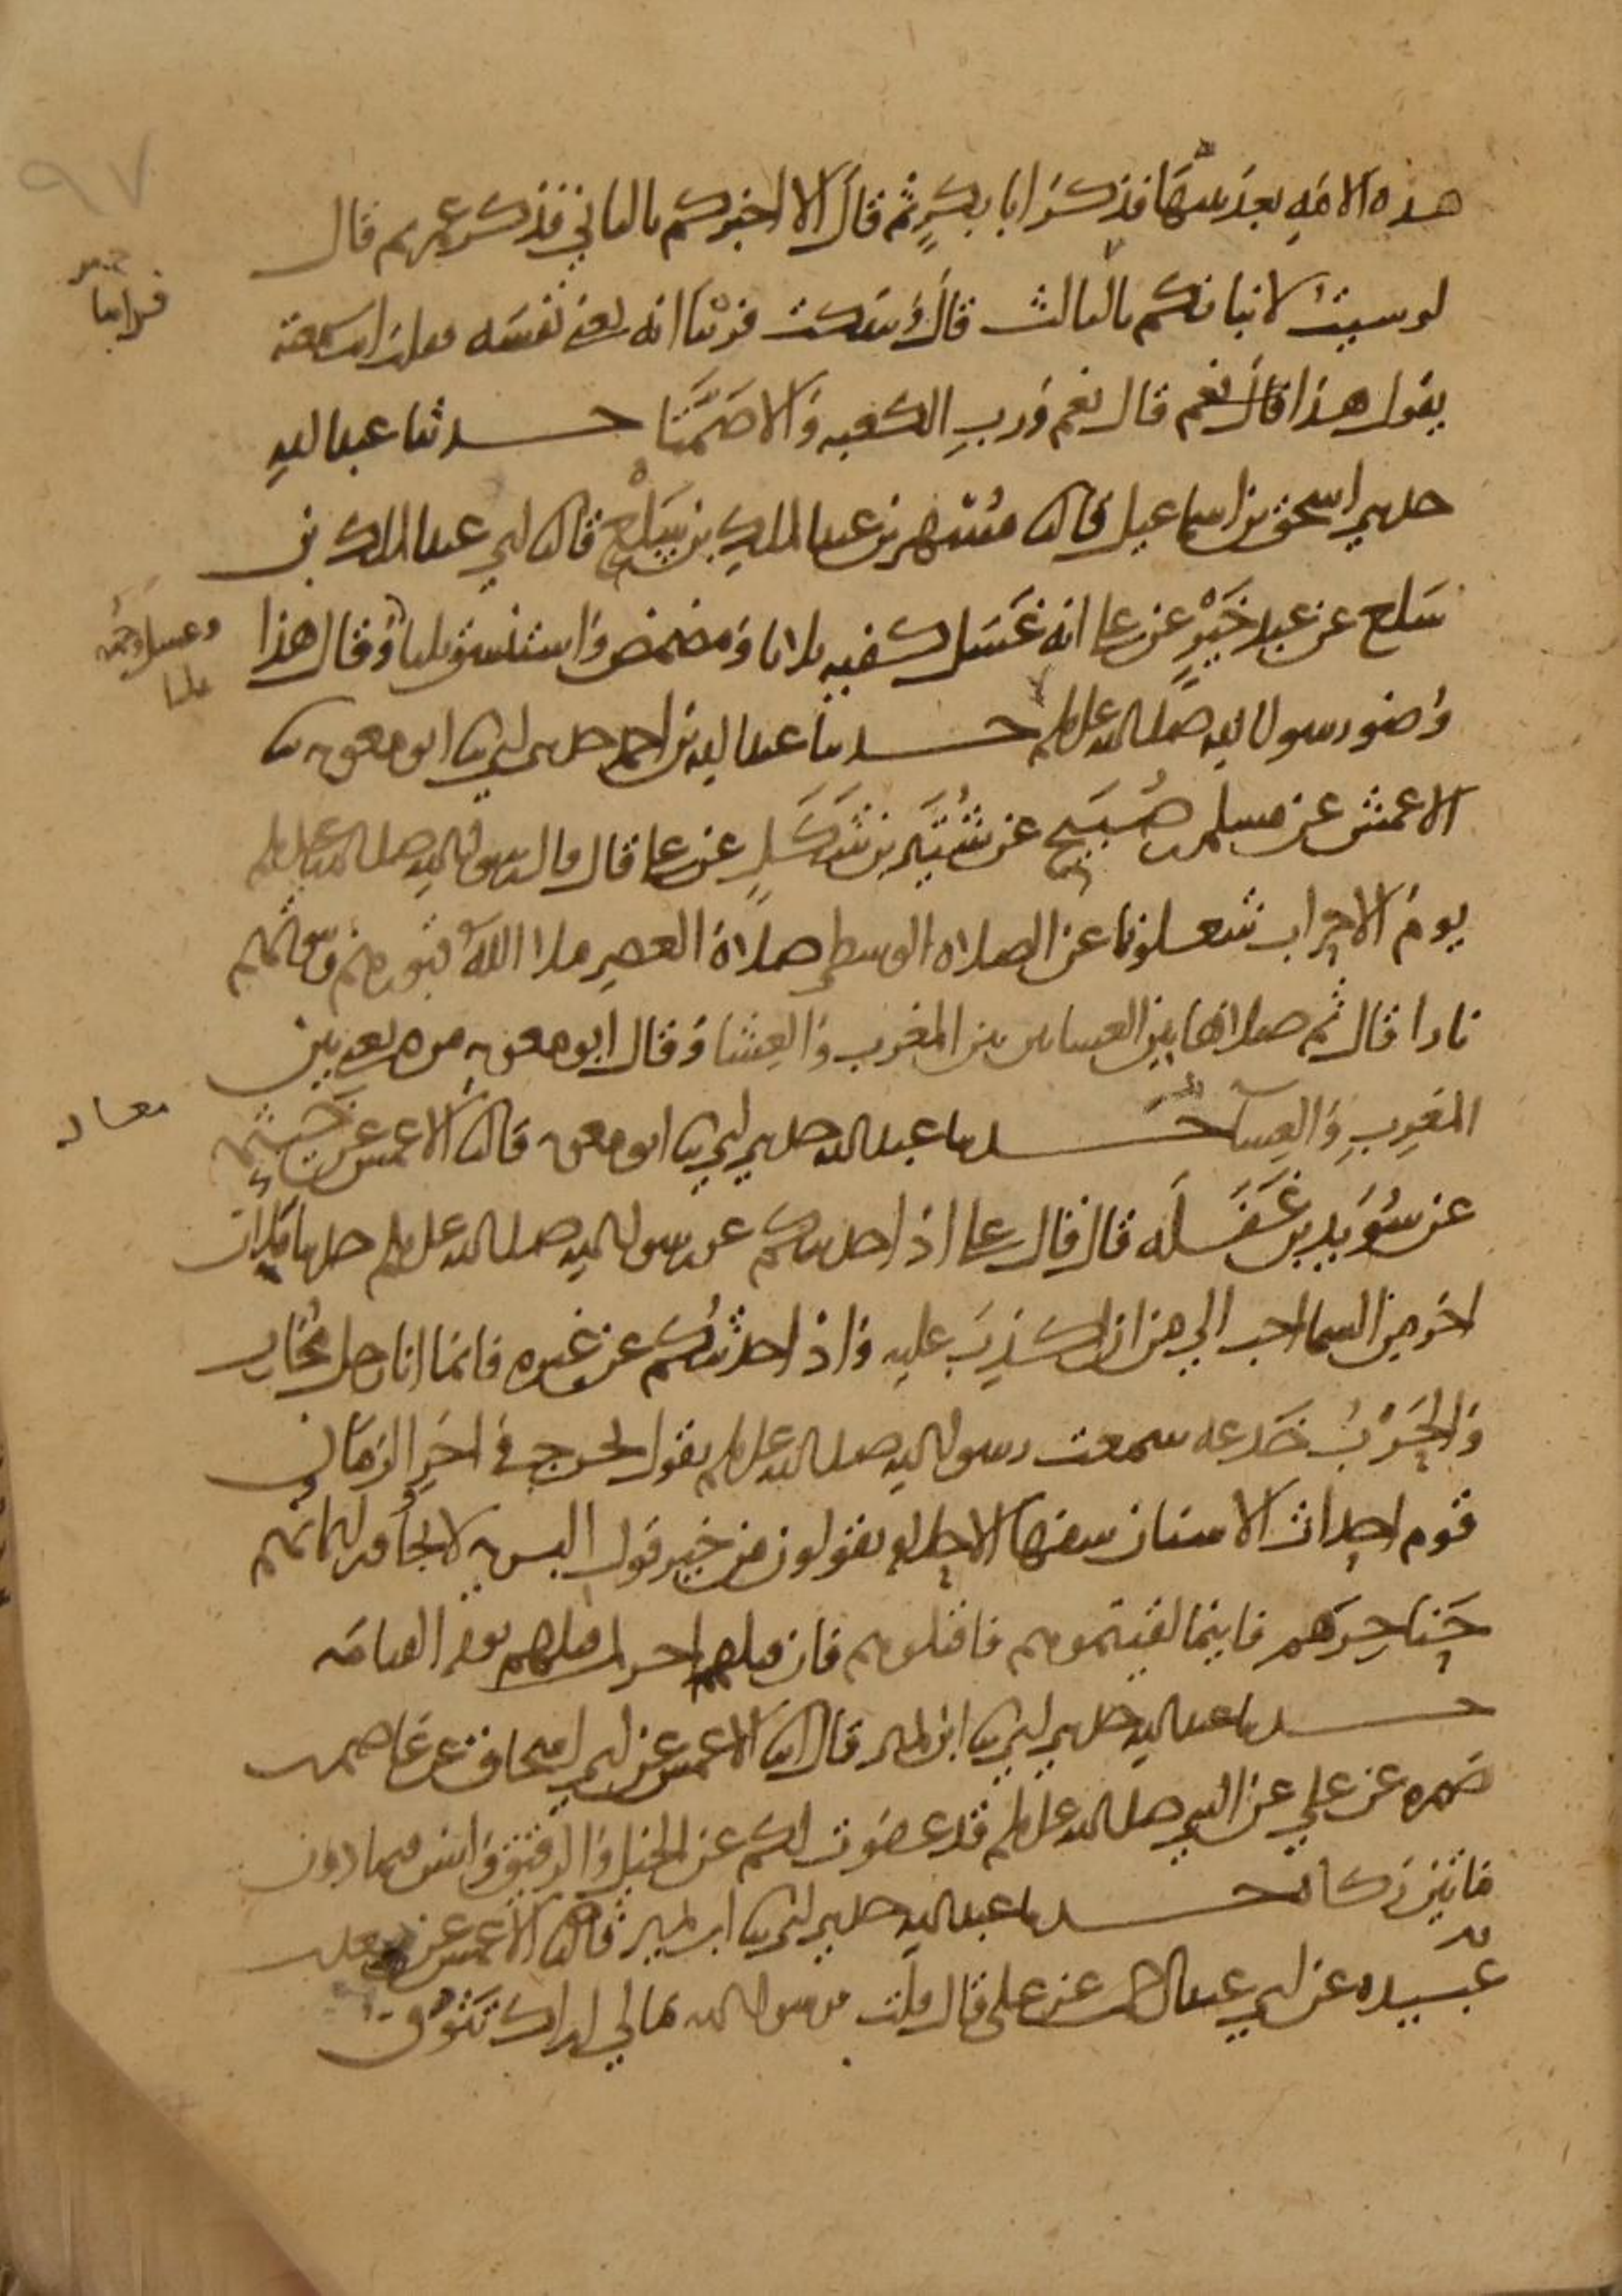 ٩٧
هذه الامه بعد نبيها فذكر ابا بكر ثم قال الا اخبركم بالثاني فذكر عمر ثم قال
لو شيت لانباتكم بالثالث قال وسكت فرينا انه يعني نفسه فقلت انت سمعته
يقول هذا قال نعم قال نعم ورب الكعبه والا صمتا حدثنا عبد الله
حدثني اسحق بن اسماعيل قال ثنا مسهر بن عبد الملك بن سلع قال ثنا ابي عبد الملك بن
سلع عن عبد خير عن علي انه غسل كفيه ثلاثا ومضمض واستنشق ثلاثا وقال هذا
وغسل وجهه
ثلثا
وضو رسول الله صلى الله عليه وسلم حدثنا عبد الله بن احمد حدثني ابي ثنا ابو معويه ثنا
الاعمش عن مسلم بن صبيح عن شتير بن شكل عن علي قال قال رسول الله صلى الله عليه وسلم
يوم الاحزاب شغلونا عن الصلاه الوسطى صلاة العصر ملا الله قبورهم وبيوتهم
نارا قال ثم صلاها بين العشاين بين المغرب والعشا وقال ابو معويه مره يعني بين
المغرب والعشا حدثنا عبد الله حدثني ابي ثنا ابو معويه قال ثنا الاعمش عن خيثمه
معاد
عن سويد بن غفله قال قال علي اذا حدثتكم عن رسول الله صلى الله عليه وسلم حديثا فلان
اخر من السما احب الي من ان اكذب عليه واذا حدثتكم عن غيره فانما انا رجل محارب
والحرب خدعه سمعت رسول الله صلى الله عليه وسلم يقول يخرج في اخر الزمان
قوم احداث الاسنان سفها الاحلام يقولون من خير قول البريه لا يجاوز ايمانهم
حناجرهم فاينما لقيتموهم فاقتلوهم فان قتلهم اجر لمن قتلهم يوم القيامه
حدثنا عبد الله حدثني ابي ثنا ابن نمير قال ثنا الاعمش عن ابي اسحاق عن عاصم بن
ضمره عن علي عن النبي صلى الله عليه وسلم قد عفوت لكم عن الخيل والرقيق وليس فيما دون
ماتين زكاة حدثنا عبد الله حدثني ابي ثنا ابن نمير قال ثنا الاعمش عن سعد بن
عبيده عن ابي عبد الرحمن عن علي قال قلت يرسول الله ما لي اراك تنوق